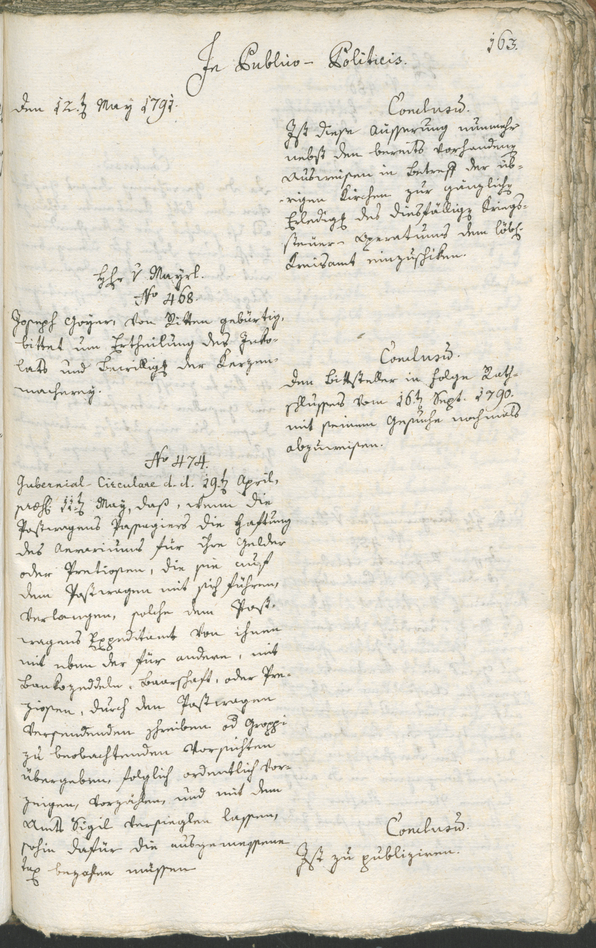 163.
In Publico-Politicis.
den 12.t May 1791.
Conclusum.
Ist diese Äusserung nunmehr
nebst den bereits vorhandenen
Ausweisen in Betreff der üb-
rigen Kirchen zur gänzlichen
Erledigg des diesfälligen Kriegs-
steuer-Operatums dem löbl.
Kreisamt einzuschiken.
Hr v Mayrl.
No 468
Joseph Gayer von Ritten gebürtig,
bittet um Ertheilung des Inko-
lats und Bewilligg der Kerzen-
macherey.
Conclusum.
Den Bittsteller in Folge Rath-
schlusses vom 16.t Sept. 1790.
mit seinem Gesuche nochmals
abzuweisen.
No 474.
Gubernial-Circulare d. d. 19.t April,
praes. 11.t May, daß, wenn die
Postwagens Passagiers die Haftung
des Aerariums für ihre Gelder
oder Pretiosen, die sie auf
dem Postwagen mit sich führen,
verlangen, solche dem Post-
wagens Expeditamt von ihnen
mit eben der für andere, mit
Bankozeddeln, Baarschaft, oder Pre-
ziosen, durch den Postwagen
versendenden Schreiben od Groppi
zu beobachtenden Vorsichten
übergeben, folglich ordentlich vor-
zeigen, vorzählen, und mit dem
Amts Sigil versieglen lassen,
sohin dafür die ausgemessene
Tax bezahlen müssen
Conclusum.
Ist zu publiziren.